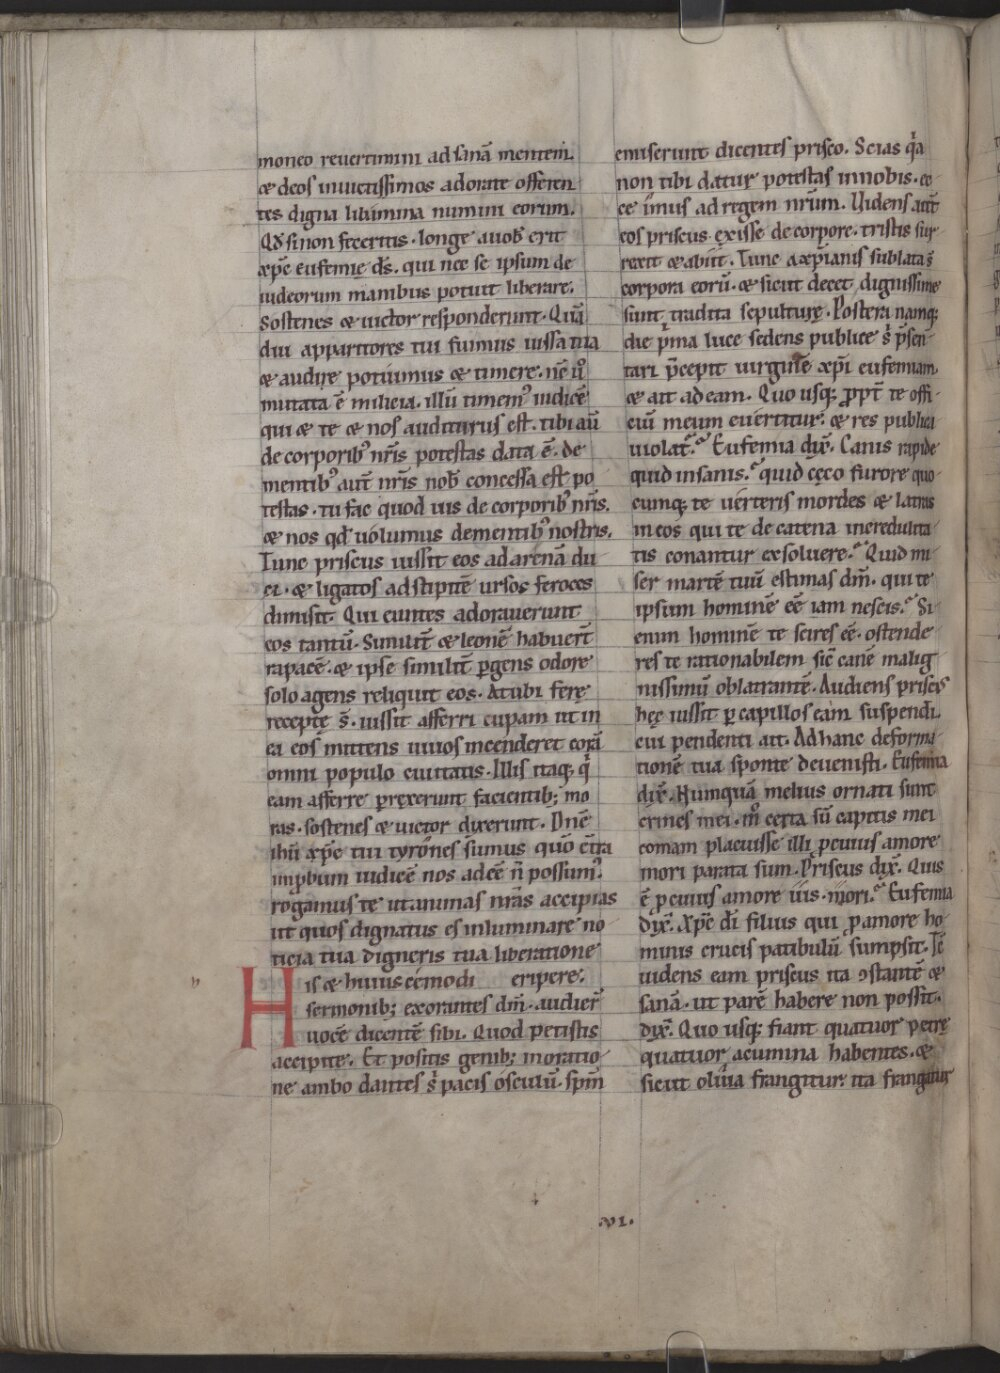 moneo revertimini ad sanā mentem.
& deos invictissimos adorate offeren
tes digna libamina numini eorum.
Qd̄ si non feceritis. longe a vob̄ erit
xp̄c eufemie ds̄. qui nec se ipsum de
iudeorum manibus potuit liberare.
Sostenes & victor responderunt. Quā
diu apparitores tui fuimus iussa tua
& audire potuimus & timere. nc̄ v̊
mutata ē milicia. illū timem᷒ iudicē
qui & te & nos auditurus est. tibi aū
de corporib᷒ nr̄is potestas data ē. de
mentib᷒ aut̄ nr̄is nob̄ concessa est po
testas. tu fac quod vis de corporib᷒ nr̄is.
& nos qd̄ volumus de mentib᷒ nostris.
Tunc priscus iussit eos ad arenā du
ci. & ligatos ad stipitē ursos feroces
dimisit. Qui euntes adoraverunt
eos tantū. Similit̄ & leonē habuer̄t
rapacē. & ipse similit̄ ꝑgens odore
solo agens reliquit eos. At ubi ferę
receptę s̄. iussit afferri cupam ut in
ea eos mittens vivos incenderet corā
omni populo civitatis. Illis itaq; q́
eam afferre ꝑrexerunt facientib; mo
ras. sostenes & victor dixerunt. Dn̄e
ihū xp̄e tui tyrones sumus quō c̄tra
imꝓbum iudicē nos adeē n̄ possum᷒.
rogamus te ut animas nr̄as accipias
ut quos dignatus es inluminare no
ticia tua digneris tua liberatione
His & huiuscemodi eripere.
sermonib; exorantes dm̄. audier̄
vocē dicentē sibi. Quod petistis
accipite. Et positis genib; in oratio
ne ambo dantes s̄ pacis osculū. spm̄
emiserunt dicentes prisco. Scias q́a
non tibi datur potestas in nobis. ec
ce imus ad regem nr̄um. Videns aut̄
eos priscus exisse de corpore. tristis sur
rexit & abiit. Tunc a xp̄ianis sublata s̄
corpora eorū. & sicut decet dignissime
sunt tradita sepulturę. Postera namq;
die p̄ma luce sedens publice s̄ p̄sen
tari p̄cepit virginē xp̄i eufemiam
& ait ad eam. Quo usq; ꝓpt̄ te offi
ciū meum evertitur. & res publica
violat᷒. Eufemia dix̄. Canis rapide
quid insanis. quid cęco furore quo
cumq; te verteris mordes & latras
in eos qui te de catena incredulita
tis conantur exsoluere. Quid mi
ser martē tuū estimas dm̄. qui te
ipsum hominē eē iam nescis. Si
enim hominē te scires eē. ostende
res te rationabilem sic̄ canē malig
nissimū oblatrantē. Audiens priscus
hęc iussit ꝑ capillos eam suspendi.
cui pendenti ait. Ad hanc deforma
tionē tua sponte devenisti. Eufemia
dix̄. Numquā melius ornati sunt
crines mei. m̊ certa sū capitis mei
comam placuisse illi ꝓ cuius amore
mori parata sum. Priscus dix̄. Quis
ē ꝓ cuius amore vis mori. Eufemia
dix̄. Xp̄c di filius qui ꝓ amore ho
minis crucis patibulū sumpsit. Tc̄
videns eam priscus ita ↄstantē &
sanā. ut parē habere non possit.
dix̄. Quo usq; fiant quatuor petrę
quatuor acumina habentes. &
sicut oliva frangitur. ita frangatur
.VI.